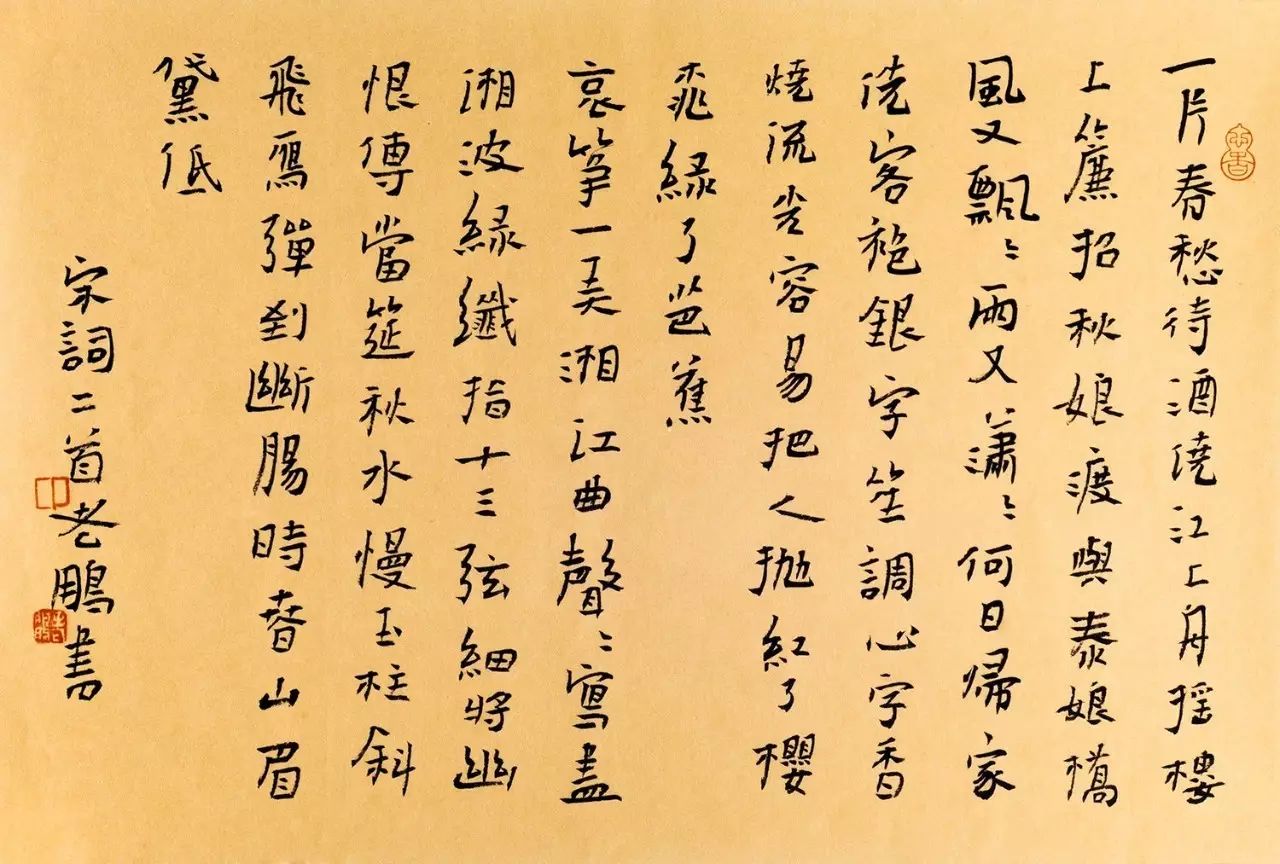 一片春愁待酒澆江上舟搖樓
上簾招秋娘渡與泰娘橋
風又飄〻雨又瀟〻何日歸家
洗客袍銀字笙調心字香
燒流光容易把人拋紅了櫻
桃緑了芭蕉
哀筝一弄湘江曲聲〻寫盡
湘波緑纖指十三弦細將幽
恨傳當筵秋水慢玉柱斜
飛鴈彈到斷腸時春山眉
黛低
宋詞二首老鵬書